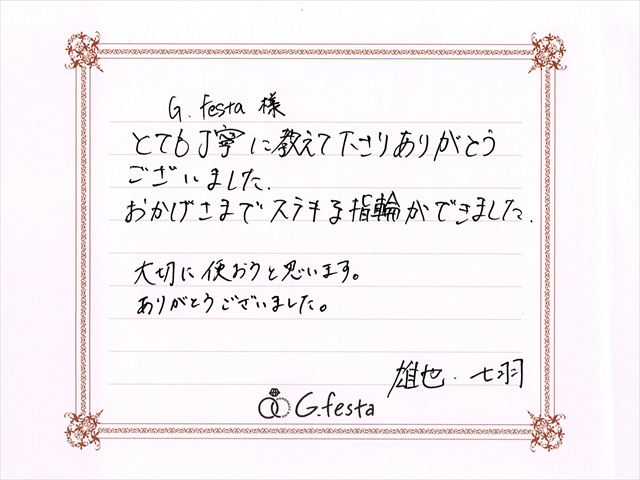 G.festa 様
とても丁寧に教えて下さりありがとう
ございました.
おかげさまでステキな指輪ができました.
大切に使おうと思います。
ありがとうございました。
雄也・七羽
G.festa